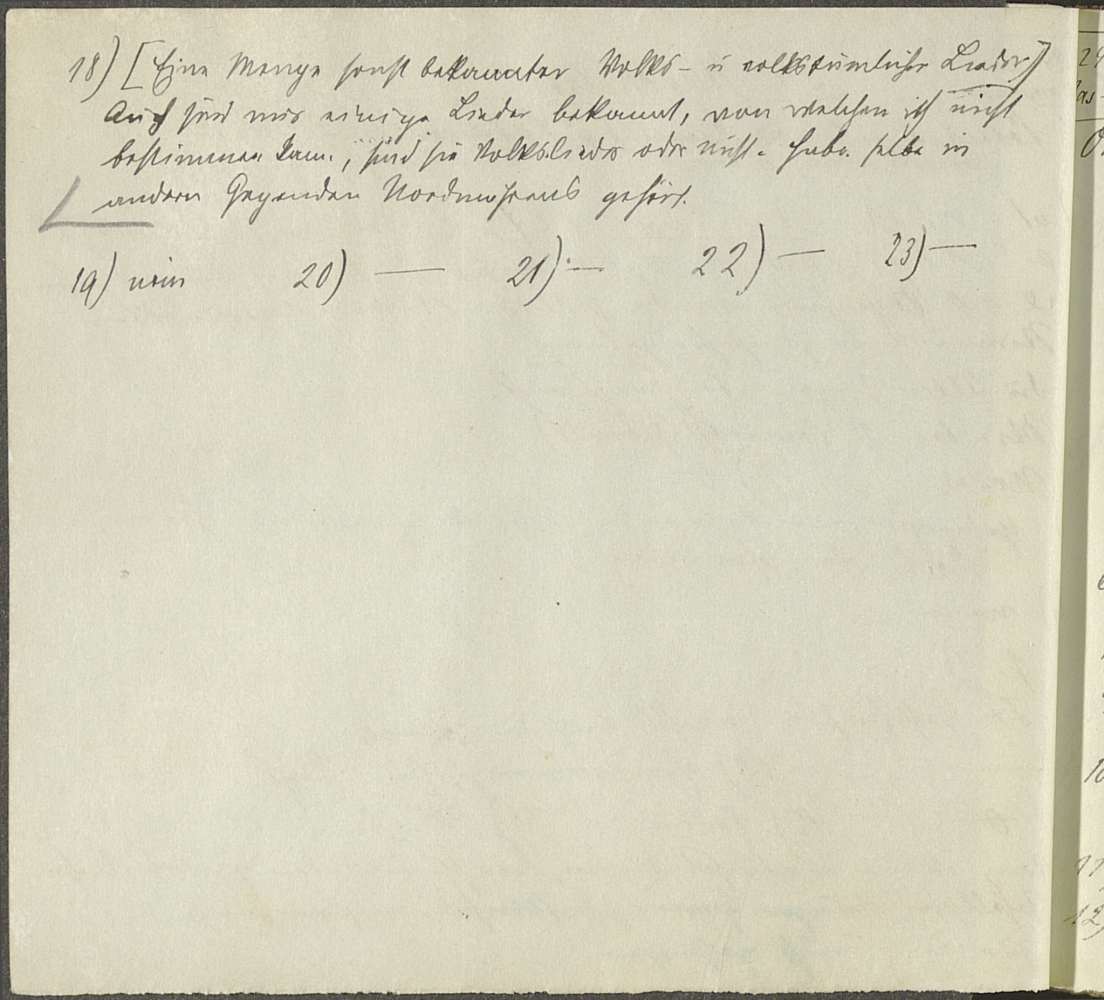 18) [Eine Menge sonst bekannter Volks- u volkstümlicher Lieder]
Auch sind mir einige Lieder bekannt, von welchen ich nicht
bestimmen kann, sind sie Volkslieder oder nicht. Habe selbe in
andern Gegenden Nordmährens gehört.
19) nein 20) — 21) — 22) — 23) —